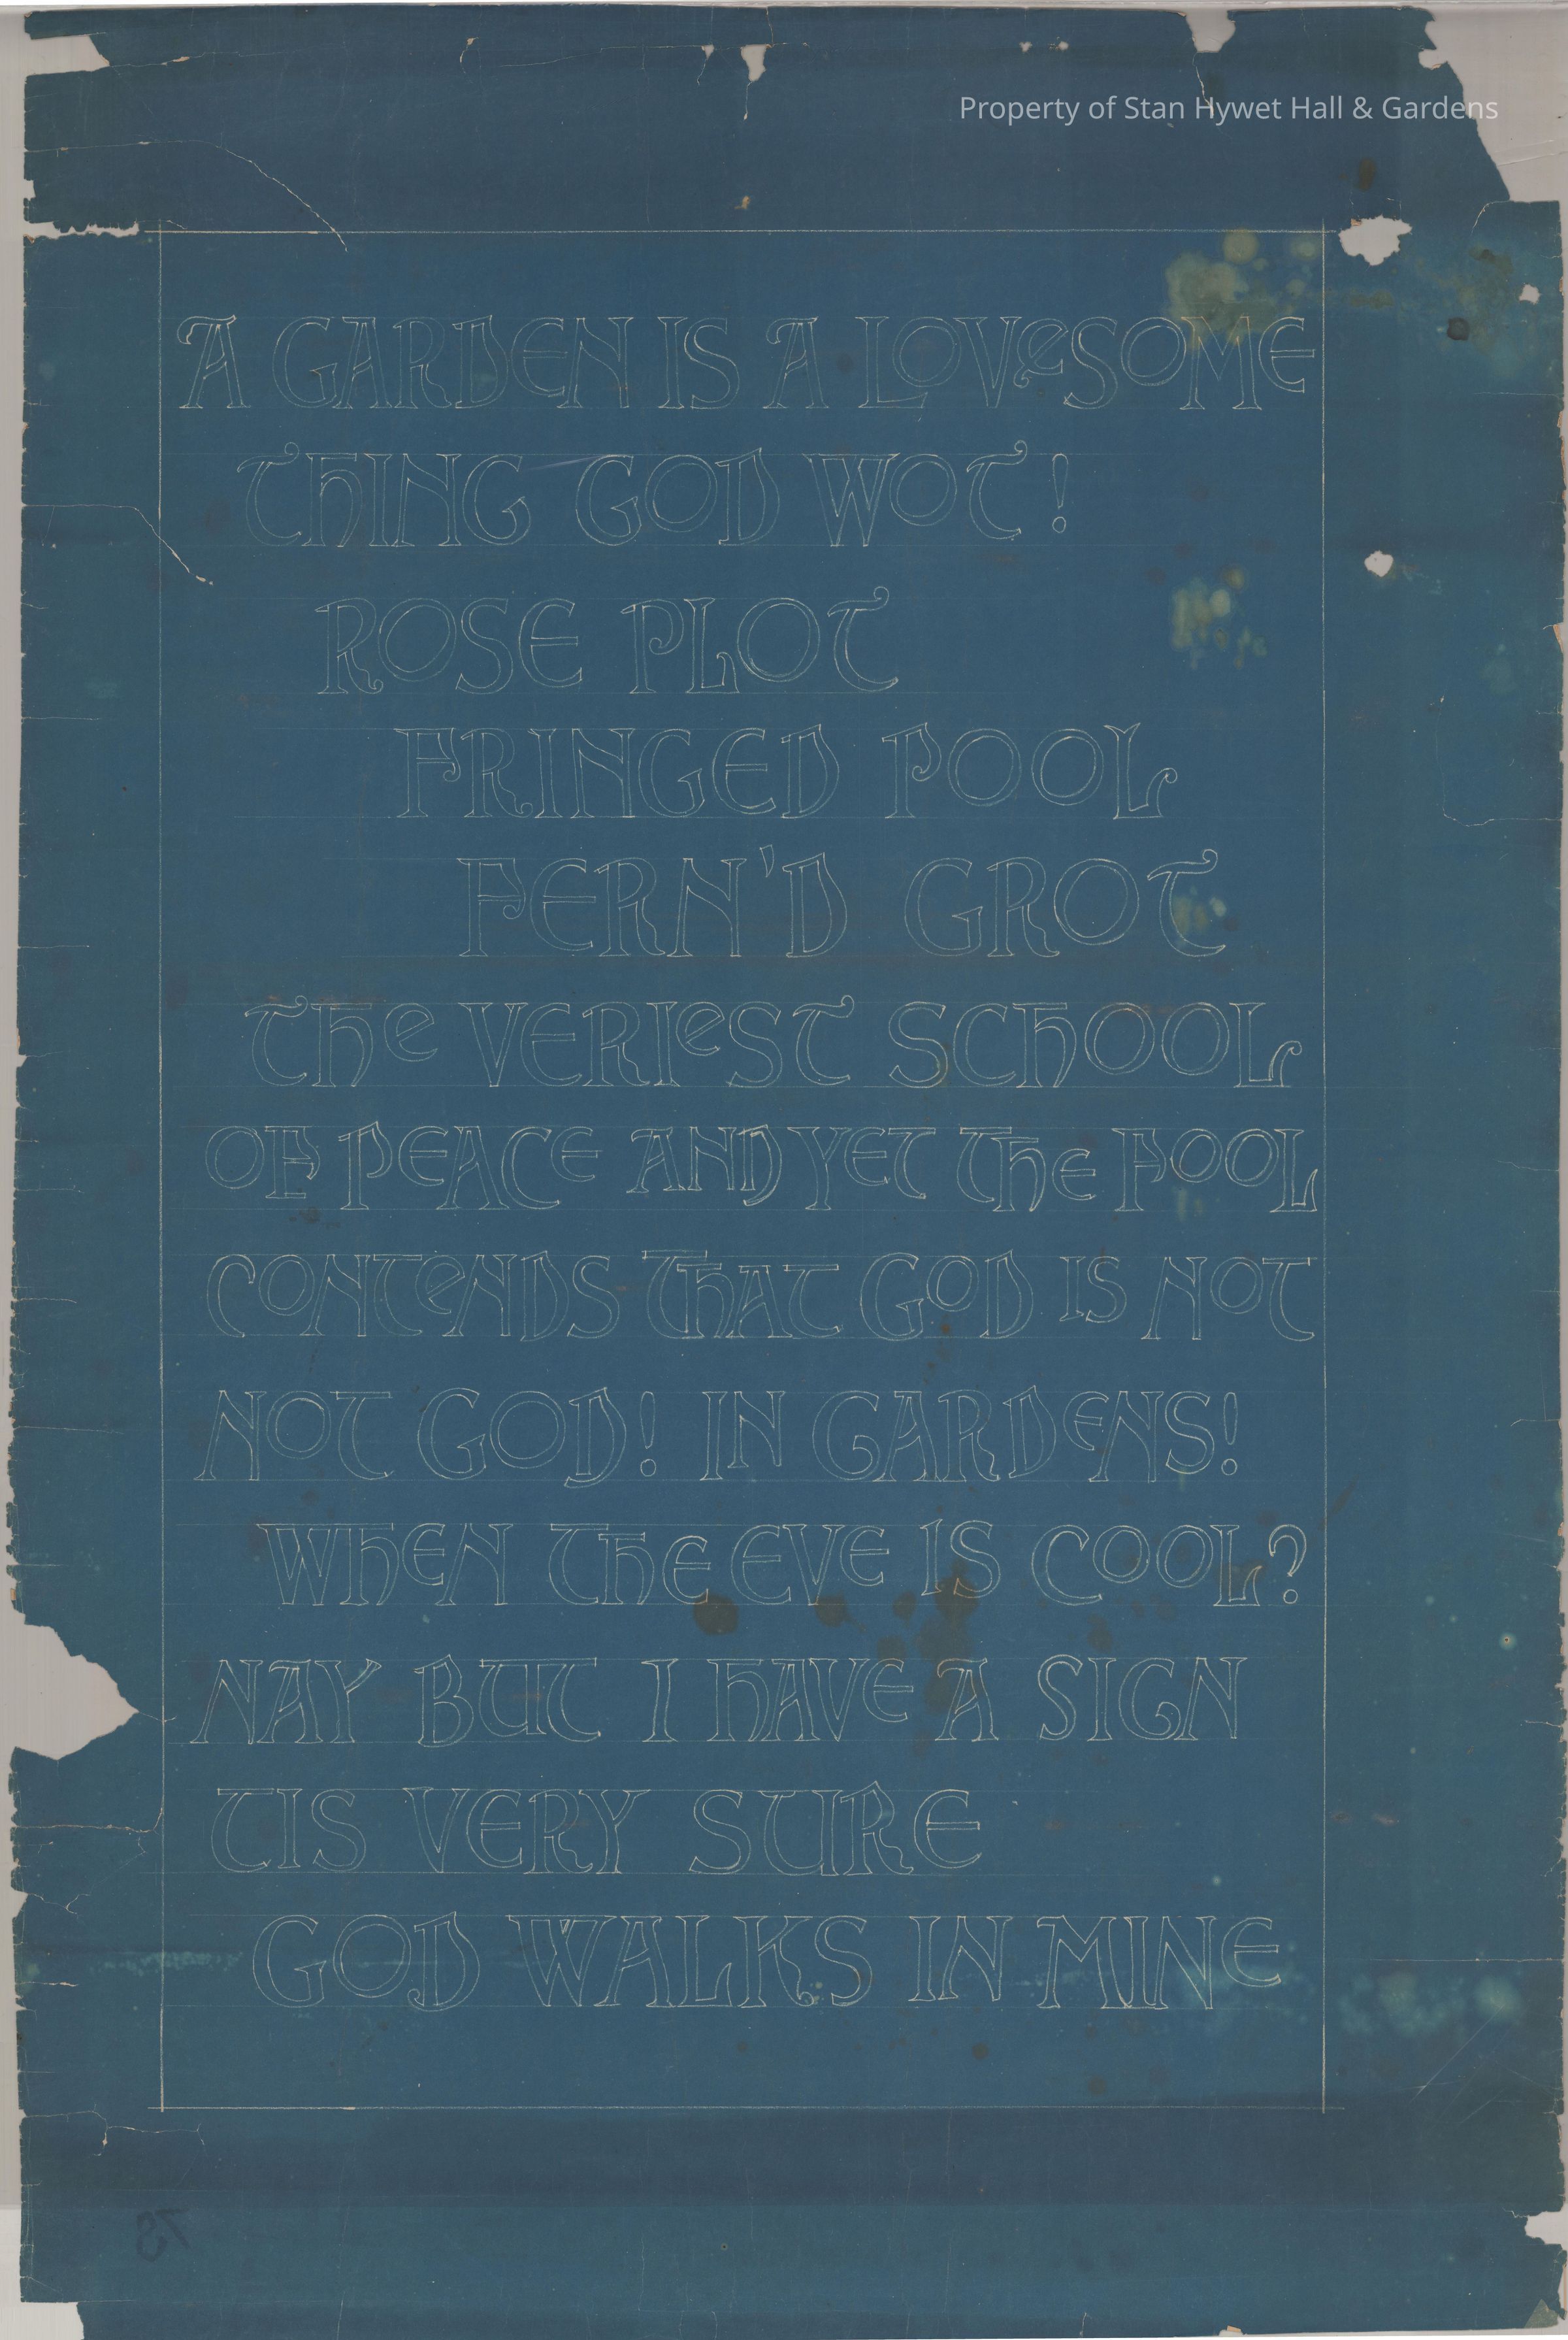 Property of Stan Hywet Hall & Gardens
A GARDEN IS A LOVeSOME
THING GOD WOT!
ROSE PLOT
FRINGED POOL
FERN'D GROT
THe VERIeST SCHOOL
OF PEACE AND YET THE FOOL
CONTeNDS THAT GOD IS NOT
NOT GOD! IN GARDENS!
WHEN THE EVE IS COOL?
NAY BUT I HAVE A SIGN
TIS VERY SURE
GOD WALKS IN MINE